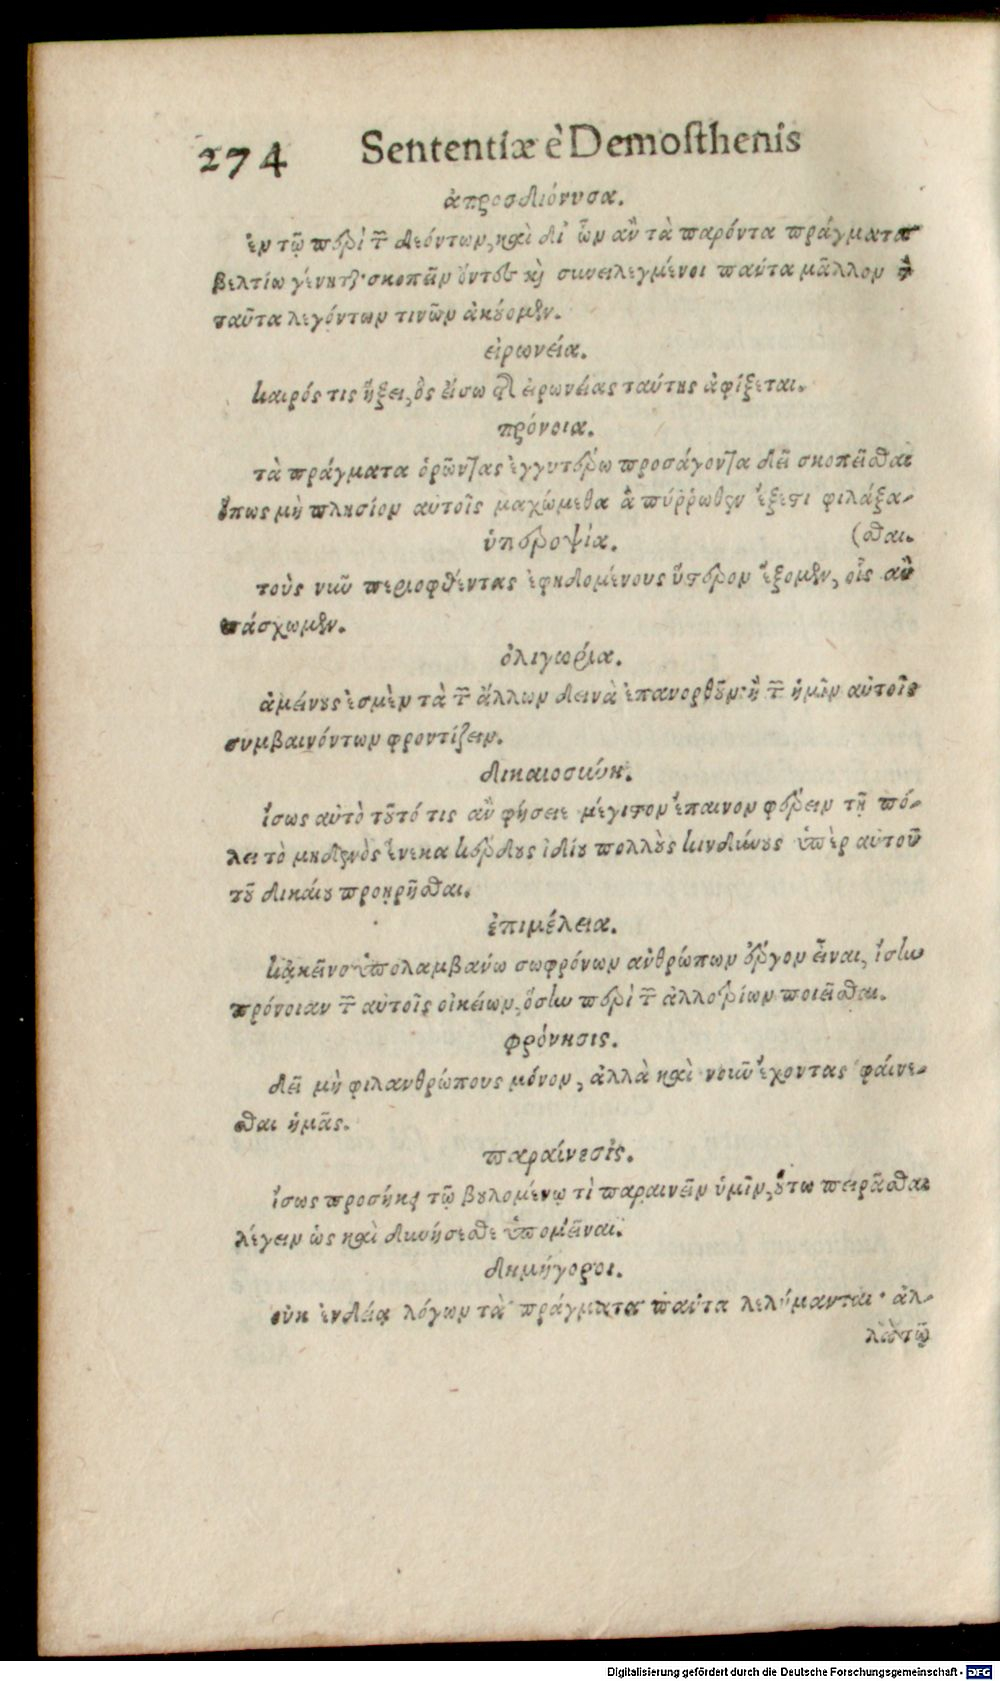 274 Sententiæ è Demoſthenis
ἀπροσδιόνυσα.
ἐν τῷ περὶ τῶν δεόντων, καὶ δι' ὧν ἂν τὰ παρόντα πράγματα
βελτίω γένηται· σκοπεῖν ὄντες καὶ συνειλεγμένοι πάντα μᾶλλον ἢ
ταῦτα λεγόντων τινῶν ἀκούομεν.
εἰρωνεία.
καιρός τις ἥξει, ὃς εἴσω τῆς εἰρωνείας ταύτης ἀφίξεται.
πρόνοια.
τὰ πράγματα ὁρῶντας ἐγγυτέρω προσάγοντα δεῖ σκοπεῖσθαι
ὅπως μὴ πλησίον αὐτοῖς μαχώμεθα ἃ πόρρωθεν ἔξεστι φιλάξα-
(σθαι.
ὑπεροψία.
τοὺς νῦν περιοφθέντας ἐφηδομένους ὕστερον ἕξομεν, οἷς ἂν
πάσχωμεν.
ὀλιγωρία.
ἀμείνους ἐσμὲν τὰ τῶν ἄλλων δεινὰ ἐπανορθοῦν· ἢ τῶν ἡμῖν αὐτοῖς
συμβαινόντων φροντίζειν.
δικαιοσύνη.
ἴσως αὐτὸ τοῦτό τις ἂν φήσειε μέγιστον ἔπαινον φέρειν τῇ πό-
λει τὸ μηδενὸς ἕνεκα κέρδους ἰδίου πολλοὺς κινδύνους ὑπὲρ αὐτοῦ
τοῦ δικαίου προῃρῆσθαι.
ἐπιμέλεια.
κἀκεῖνο ὑπολαμβάνω σωφρόνων ἀνθρώπων ἔργον εἶναι, ἴσην
πρόνοιαν τῶν αὐτοῖς οἰκείων, ὅσην περὶ τῶν ἀλλοτρίων ποιεῖσθαι.
φρόνησις.
δεῖ μὴ φιλανθρώπους μόνον, ἀλλὰ καὶ νοῦν ἔχοντας φαίνε-
σθαι ἡμᾶς.
παραίνεσις.
ἴσως προσήκει τῷ βουλομένῳ τὶ παραινεῖν ὑμῖν, οὕτω πειρᾶσθαι
λέγειν ὡς καὶ δυνήσεσθε ὑπομεῖναι.
δημήγοροι.
οὐκ ἐνδείᾳ λόγων τὰ πράγματα πάντα λελύμανται· ἀλ-
λὰ τῷ
Digitalisierung gefördert durch die Deutsche Forschungsgemeinschaft - DFG